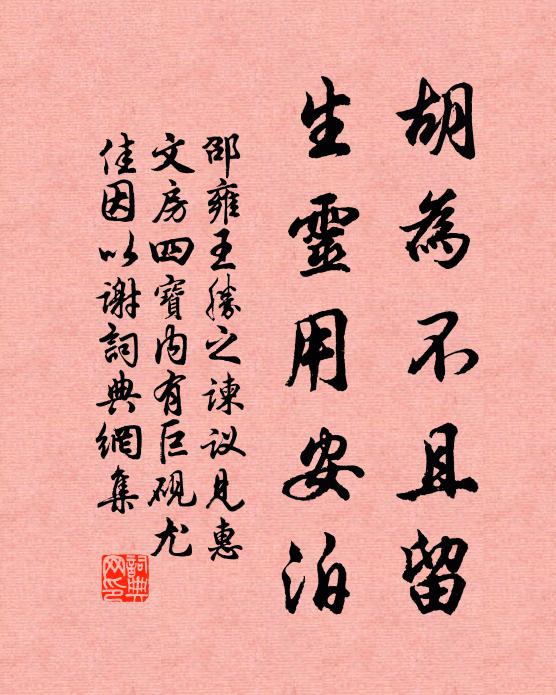 胡為不且留
生靈用安泊
邵雍王勝之諫议見惠
文房四寶内有巨硯尤
佳因以谢詞典網集
詞典
网印